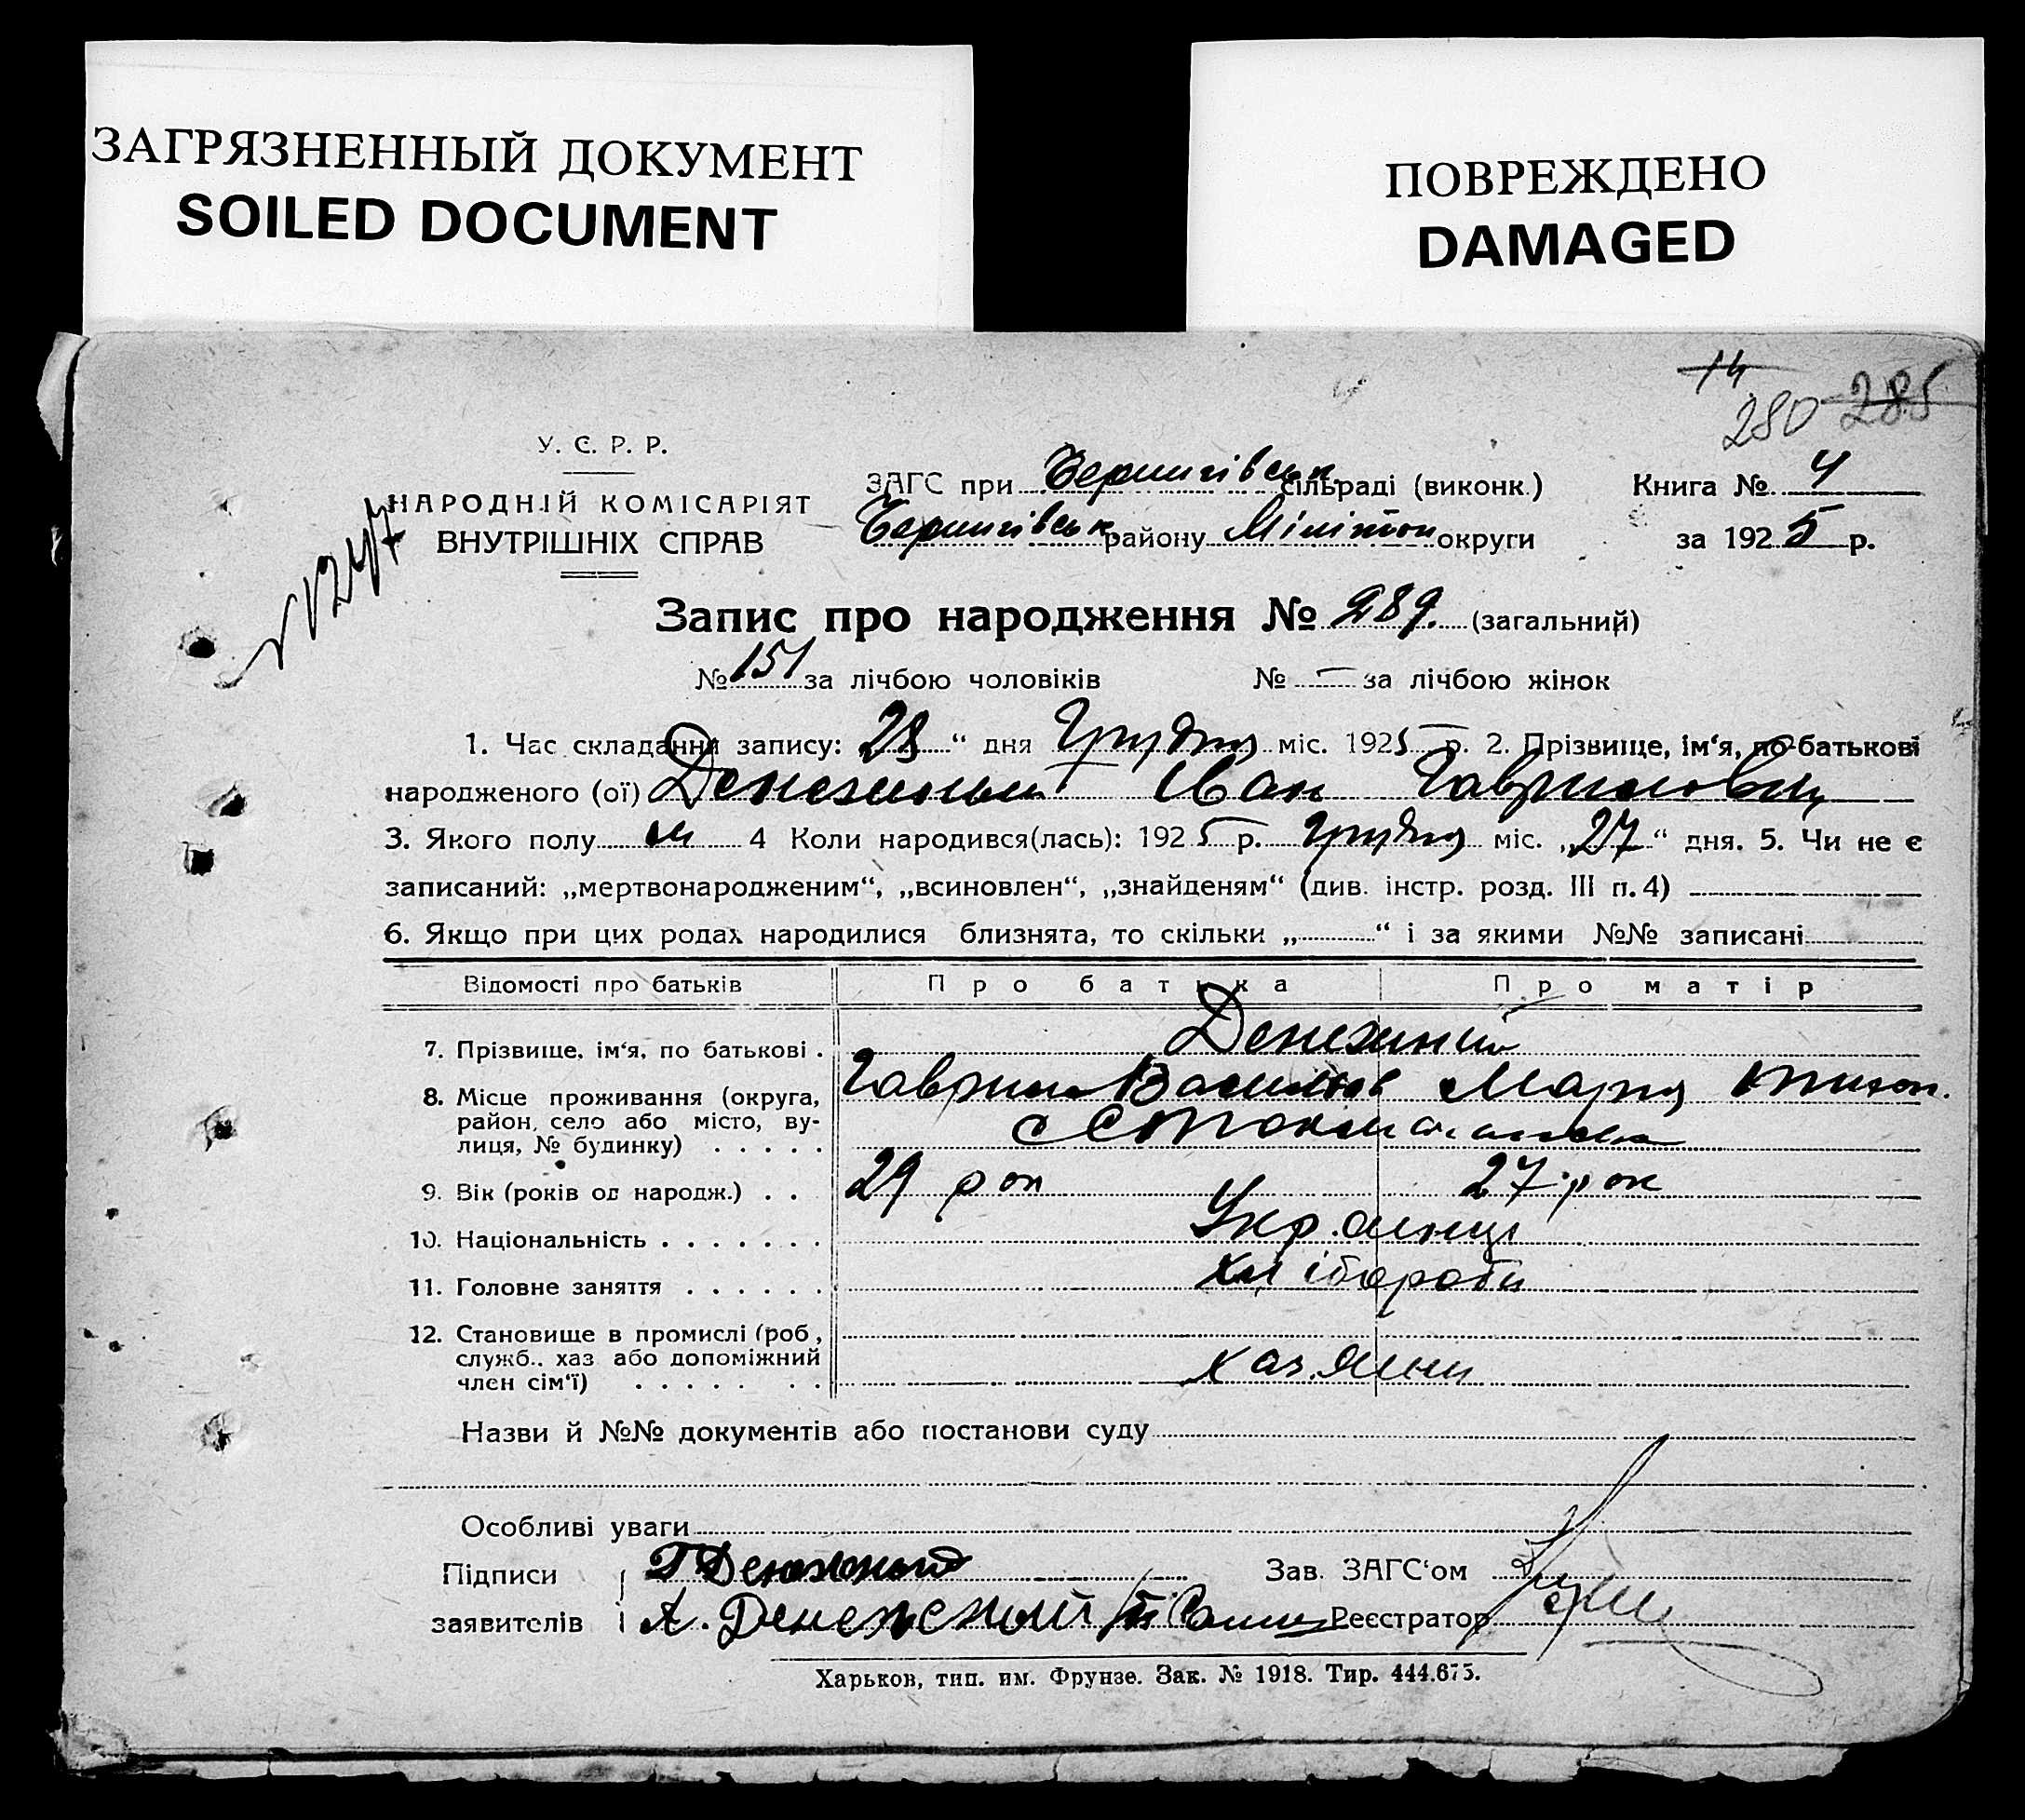 ЗАГРЯЗНЕННЫЙ ДОКУМЕНТ
SOILED DOCUMENT
ПОВРЕЖДЕНО
DAMAGED
14
280 285
У. С. Р. Р.
НАРОДНІЙ КОМІСАРІЯТ
ВНУТРІШНІХ СПРАВ
ЗАГС при Чернигівськ сільраді (виконк.) Книга № 4
Чернигівськ району Мілітоп округи за 1925 р.
Запис про народження № 289. (загальний)
№ 151 за лічбою чоловіків № — за лічбою жінок
1. Час складання запису: 28 “ дня Грудня міс. 1925 р. 2. Прізвище, ім‘я, по-батькові
народженого (ої) Денежний Іван Гаврилович
3. Якого полу м 4 Коли народився(лась): 1925 р. Грудня міс. „27“ дня. 5. Чи не є
записаний: „мертвонародженим“, „всиновлен“, „знайденям“ (див. інстр. розд. III п. 4)
6. Якщо при цих родах народилися близнята, то скільки „ “ і за якими №№ записані
Відомості про батьків Про батька Про матір
7. Прізвище, ім‘я, по батькові . Денежний
8. Місце проживання (округа, Гаврило Васильов Марія
район, село або місто, ву-
лиця, № будинку) . . . . . с
9. Вік (років од народж.) . . 29 рок 27 рок
10. Національність . . . . . . . Українці
11. Головне заняття . . . . . . Хліботроби
12. Становище в промислі (роб,
служб., хаз або допоміжний
член сім‘ї) . . . . . . . хазяїни
Назви й №№ документів або постанови суду
Особливі уваги
Підписи Г Денежный Зав. ЗАГС‘ом
заявителів А. Денежный Реєстратор
Харьков, тип. им. Фрунзе. Зак. № 1918. Тир. 444.675.